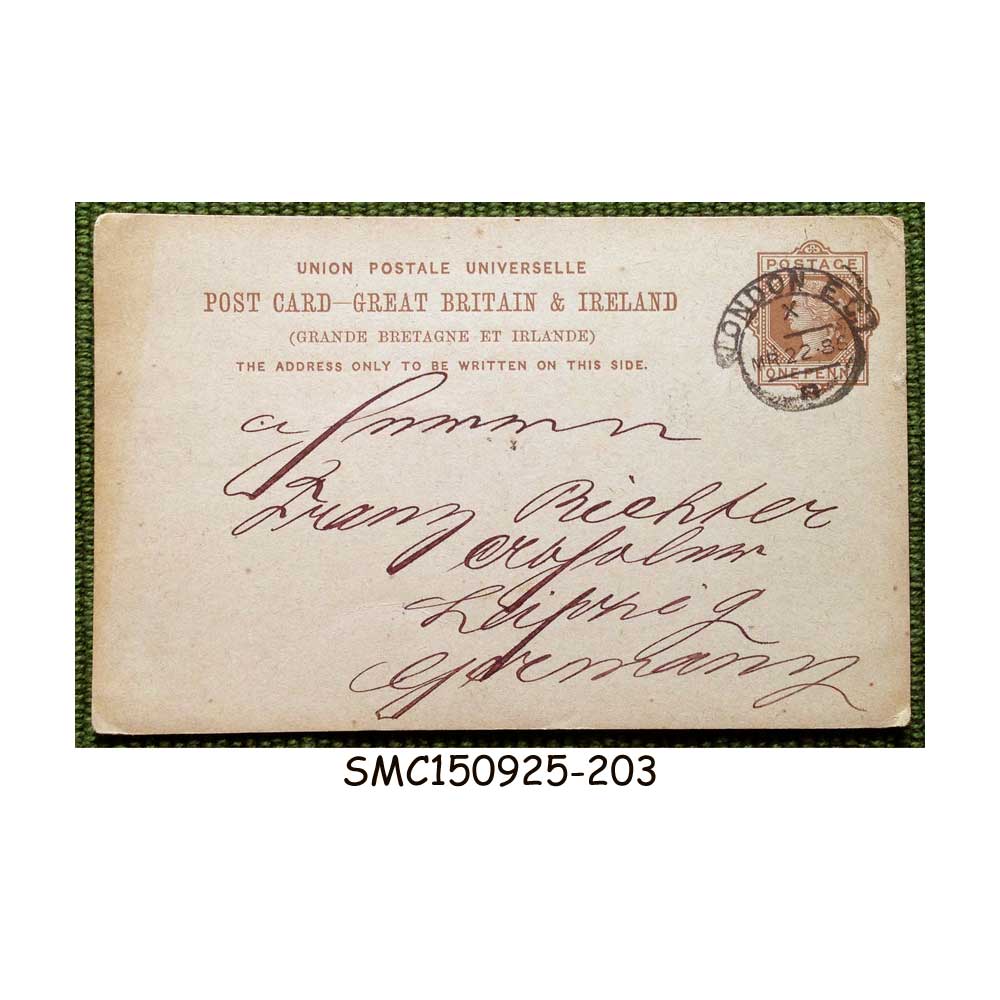 UNION POSTALE UNIVERSELLE
POST CARD—GREAT BRITAIN & IRELAND
(GRANDE BRETAGNE ET IRLANDE)
THE ADDRESS ONLY TO BE WRITTEN ON THIS SIDE.
POSTAGE
ONE PENNY
LONDON E.C.
X
MR 22 86
Franz Richter
Leipzig
Germany
SMC150925-203